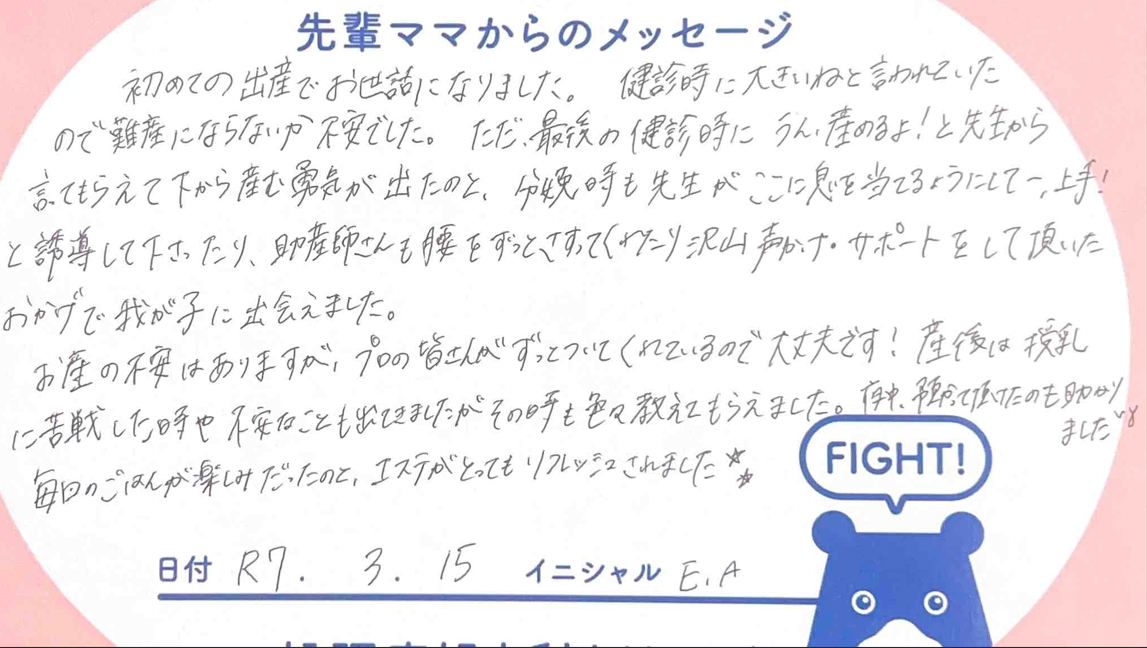 先輩ママからのメッセージ
初めての出産でお世話になりました。 健診時に大きいねと言われていた
ので難産にならないか不安でした。 ただ、最後の健診時に うん、産めるよ!と先生から
言ってもらえて下から産む勇気が出たのと、分娩時も先生がここに息を当てるようにしてー、上手!
と誘導して下さったり、助産師さんも腰をずっとさすってくれたり沢山声かけ・サポートをして頂いた
おかげで我が子に出会えました。
お産の不安はありますが、プロの皆さんがずっとついてくれているので大丈夫です! 産後は授乳
に苦戦した時や不安なことも出てきましたがその時も色々教えてもらえました。夜中、預かって頂けたのも助かり
ました
毎日のごはんが楽しみだったのと、エステがとってもリフレッシュされました
FIGHT!
日付 R7. 3. 15 イニシャル E.A